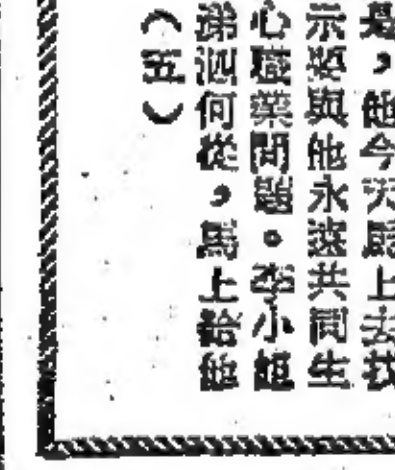 是，他今天馬上去找
示要與他永遠共同生
心職業問題。李小姐
涕泗何從，馬上給他
（五）